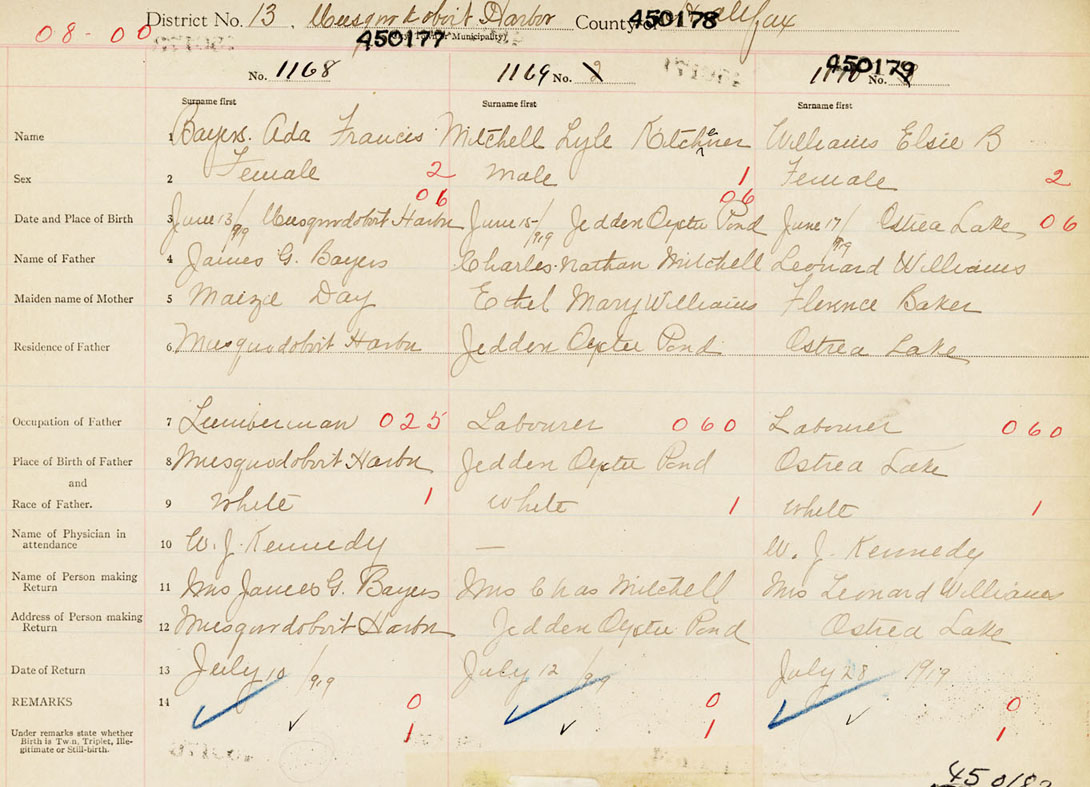 District No. 13, Musquodoboit Harbor County of Halifax
450178
08-00
450177
(City, Town or Municipality)
450179
No. 1168 1169 No. 2 1170 No.
Surname first Surname first Surname first
Name 1 Bayers Ada Francis Mitchell Lyle Kitchener Williams Elsie B
Sex 2 Female 2 Male 1 Female 2
06 06
Date and Place of Birth 3 June 13/1919 Musquodoboit Harbor June 15/1919 Jedden Oyster Pond June 17/1919 Ostrea Lake 06
Name of Father 4 James G. Bayers Charles Nathan Mitchell Leonard Williams
Maiden name of Mother 5 Maize Day Ethel Mary Williams Florence Baker
Residence of Father 6 Musquodoboit Harbor Jedden Oyster Pond Ostrea Lake
Occupation of Father 7 Lumberman 025 Labourer 060 Labourer 060
Place of Birth of Father 8 Musquodoboit Harbor Jedden Oyster Pond Ostrea Lake
and
Race of Father. 9 White 1 White 1 White 1
Name of Physician in attendance 10 W. J. Kennedy — W. J. Kennedy
Name of Person making Return 11 Mrs James G. Bayers Mrs Chas Mitchell Mrs Leonard Williams
Address of Person making Return 12 Musquodoboit Harbor Jedden Oyster Pond Ostrea Lake
Date of Return 13 July 10/1919 July 12/1919 July 28 1919
REMARKS 14 0 0 0
Under remarks state whether Birth is Twin, Triplet, Illegitimate or Still-birth. 1 1 1